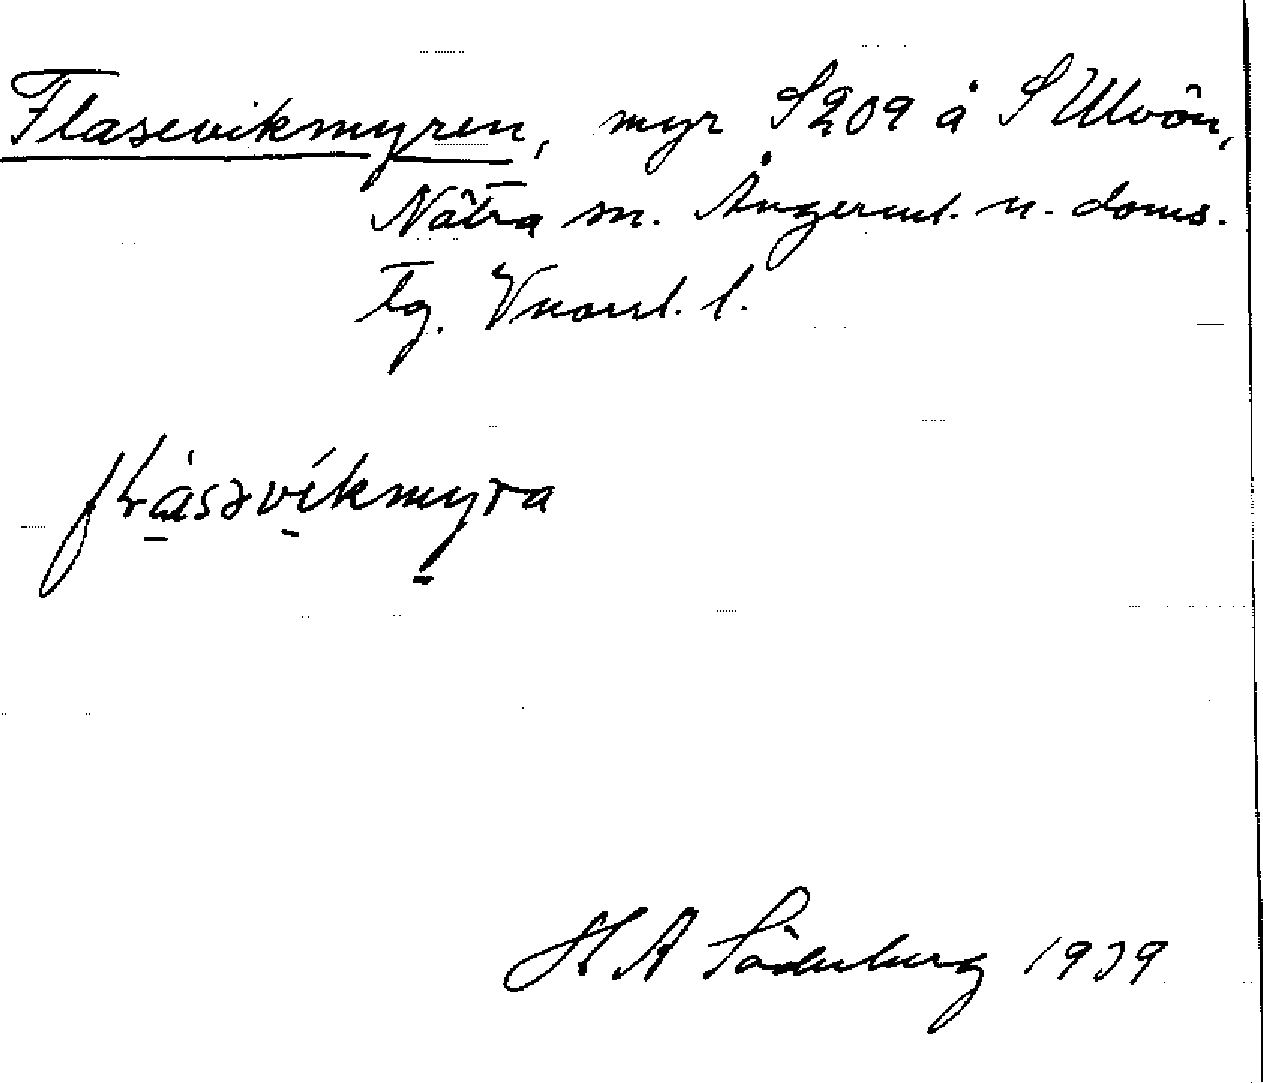 Flasevikmyren, myr S209 å S Ulvön,
Nätra sn. Ångerml. n. doms.
tg. Vnorrl. l.
flásəvíkmyra
H A Söderberg 1939